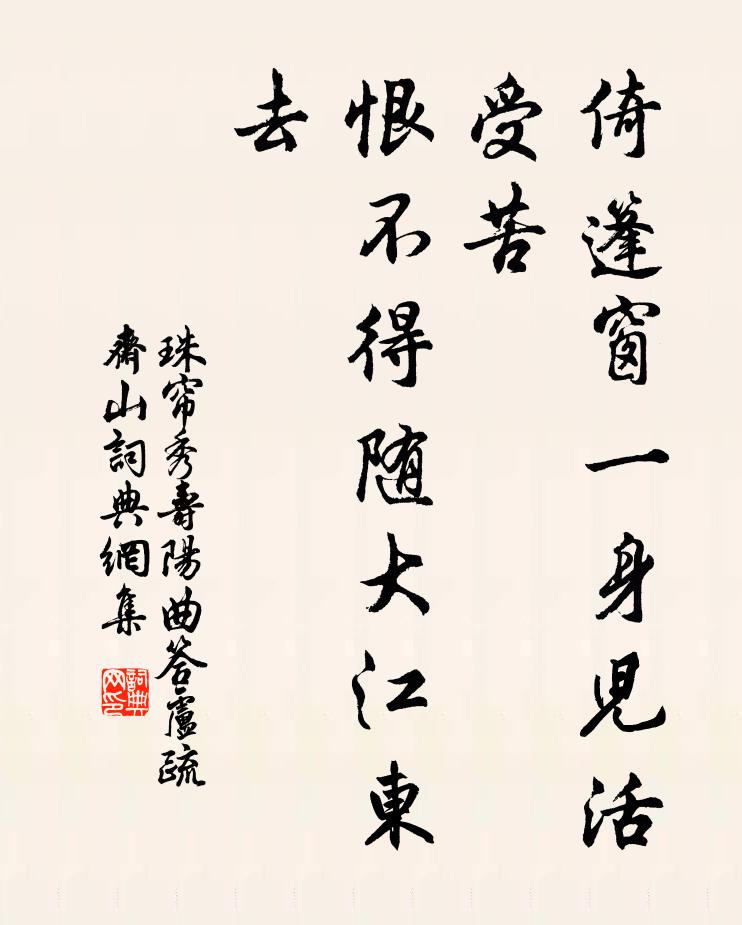 倚蓬窗一身兒活
受苦
恨不得随大江東
去
珠帘秀壽陽曲答盧疏
齋山詞典網集
詞典
网印